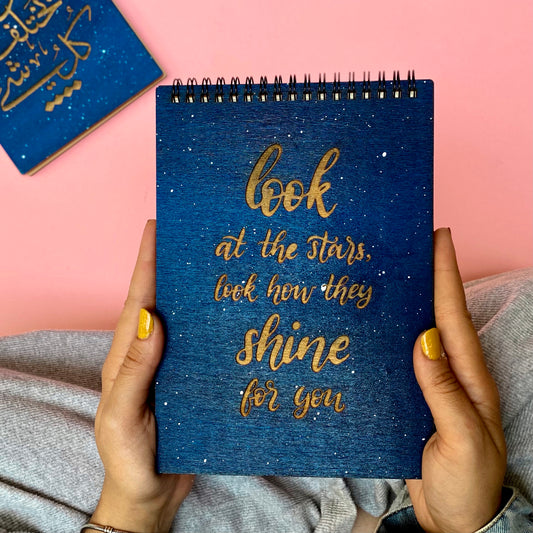 look
at the stars,
look how they
shine
for you